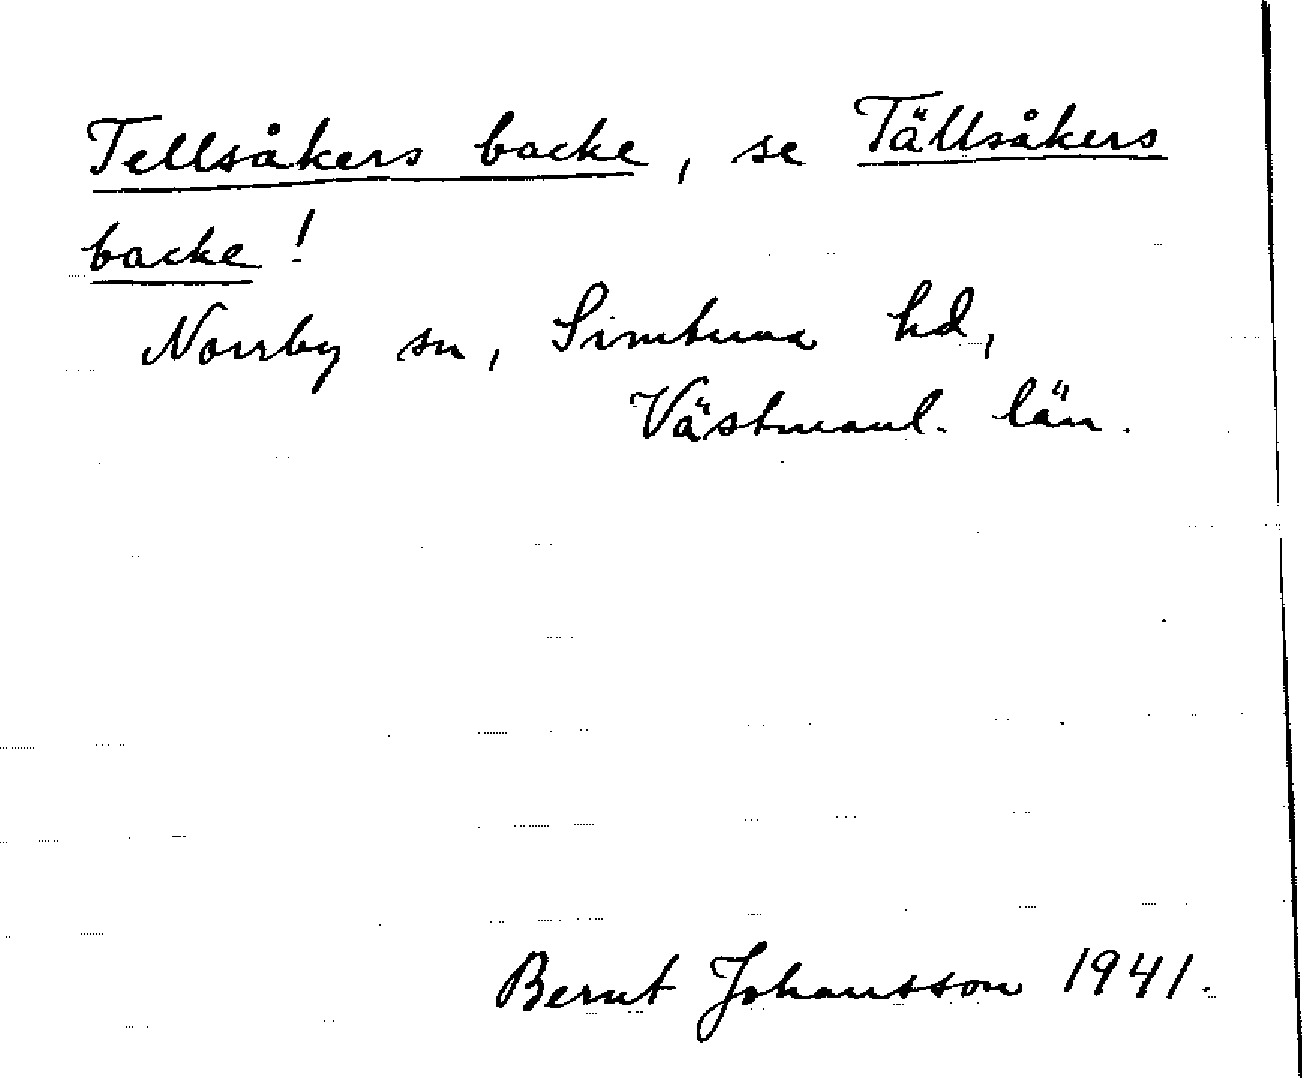 Tellsåkers backe, se Tällsåkers
backe!
Norrby sn, Simtuna hd,
Västmanl. län.
Bernt Johansson 1941.